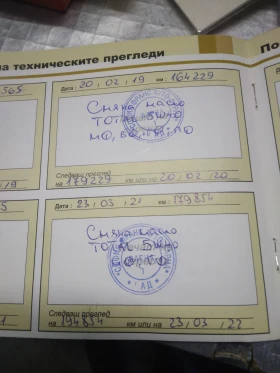 на техническите прегледи
По
565
Дата : 20 , 02 , 19 км : 164229
Смяна масло
ТОТАЛ 5W40
МФ, ВФ, ГФ, ПФ
Следващ преглед
на 179229 км или на 20 , 02 , 20
/19
5
Дата : 23 , 03 , 21 км : 179854
Смяна масло
ТОТАЛ 5W40
Следващ преглед
на 194854 км или на 23 , 03 , 22
1